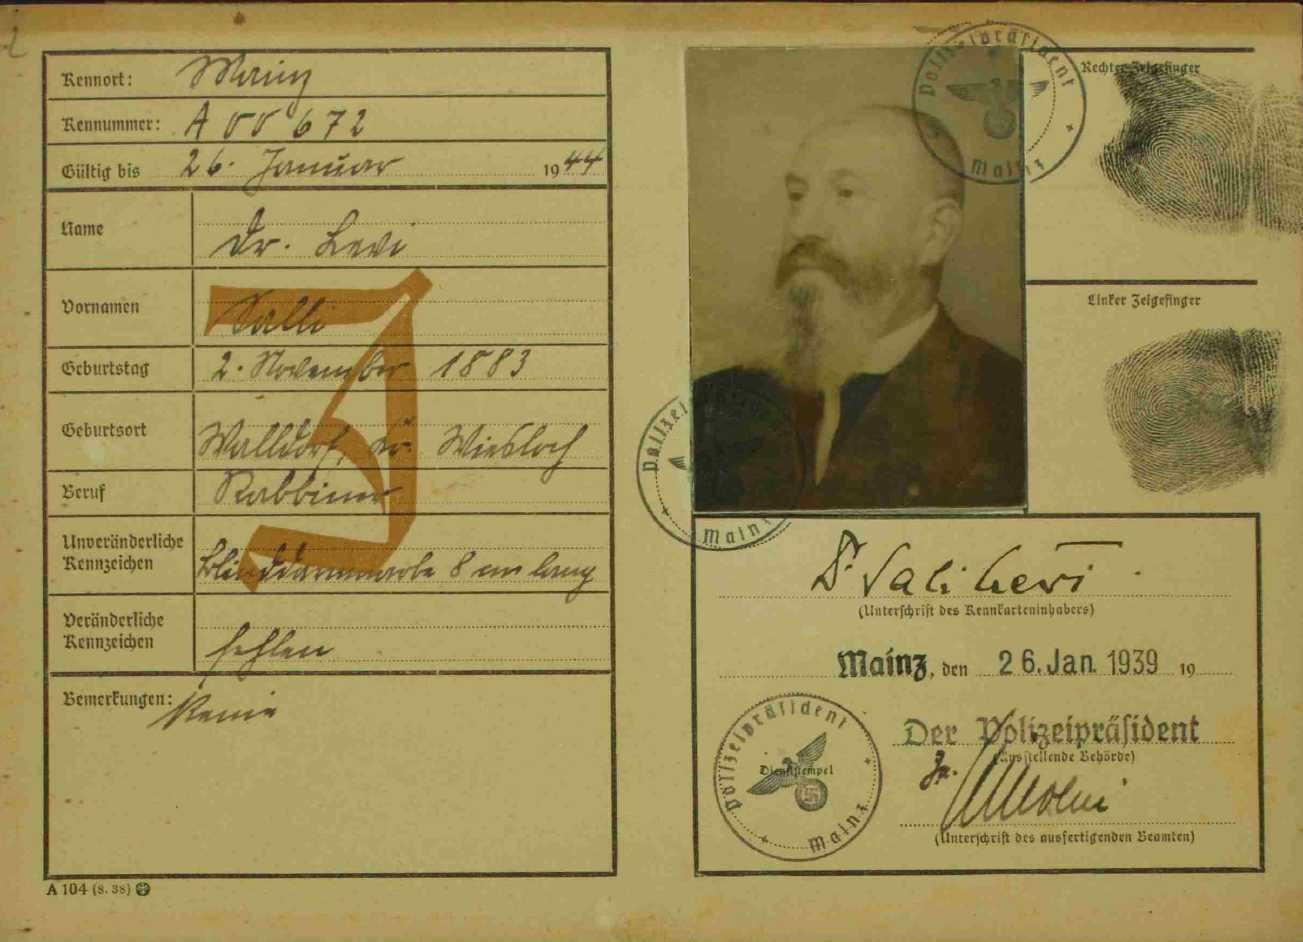 Kennort: Mainz
Kennummer: A 00 672
Gültig bis 26. Januar 1944
Name Dr. Levi
Vornamen Salli
Geburtstag 2. November 1883
Geburtsort Walldorf, bei Wiesloch
Beruf Rabbiner
Unveränderliche
Kennzeichen Blinddarmnarbe 8 cm lang
Veränderliche
Kennzeichen fehlen
Bemerkungen: Keine
J
A 104 (8. 38)
Polizeipräsident
Mainz
Rechter Zeigefinger
Linker Zeigefinger
Polizeipräsident
Mainz
Dr Sali Levi
(Unterschrift des Kennkarteninhabers)
Mainz, den 26. Jan. 1939 19
Der Polizeipräsident
(Ausstellende Behörde)
(Unterschrift des ausfertigenden Beamten)
Polizeipräsident
Dienststempel
Mainz